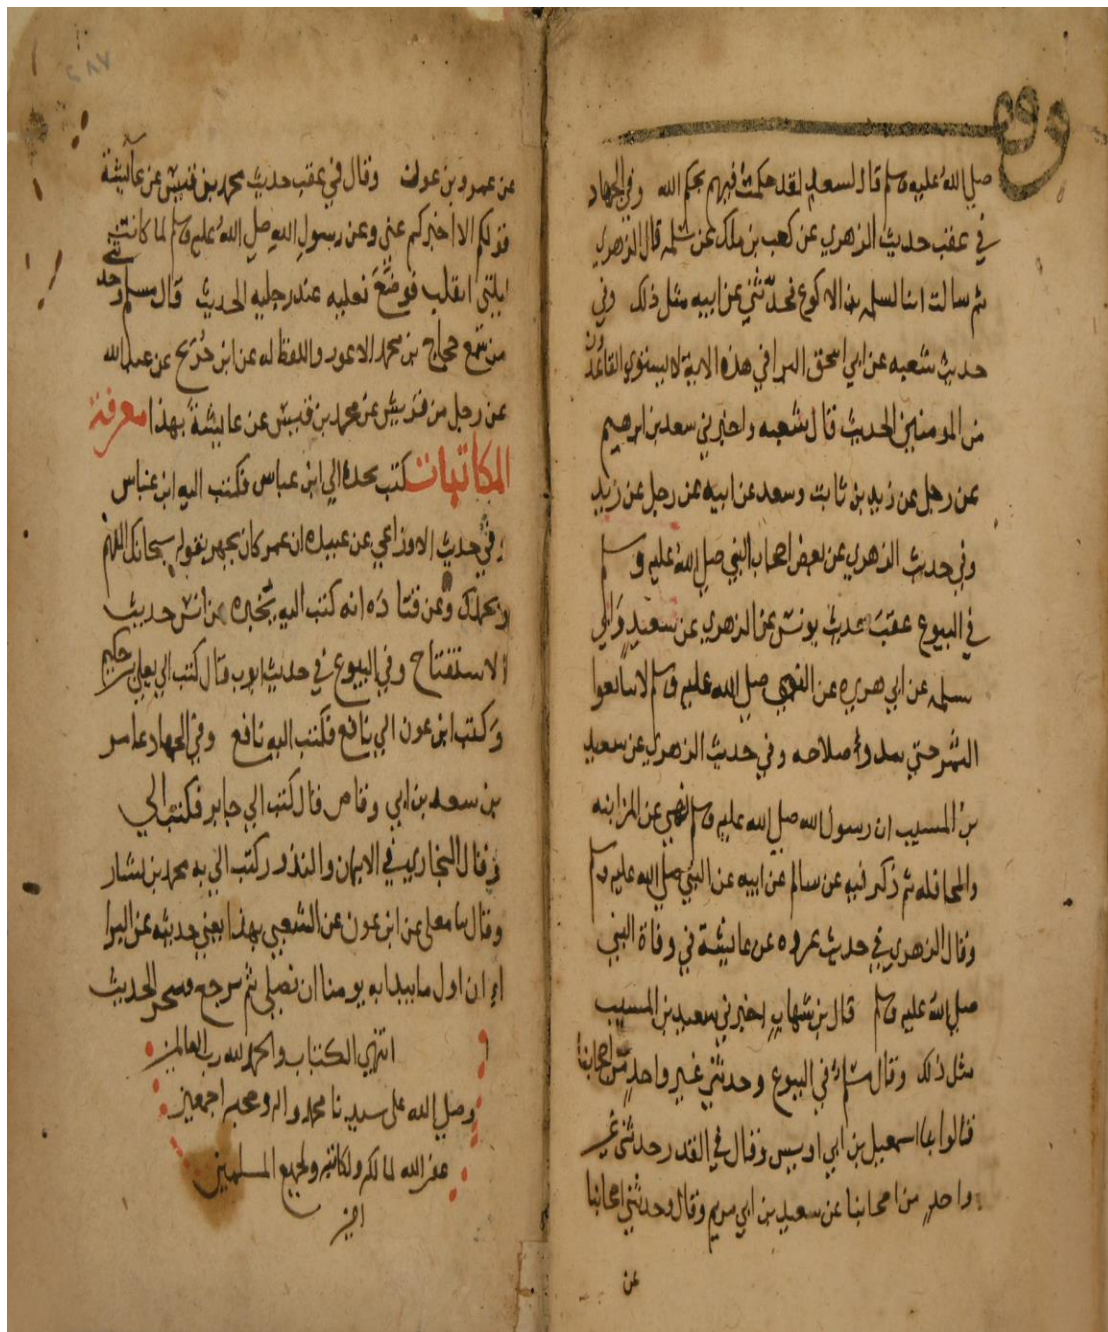 وقف
صلي الله عليه وسلم قال لسعد لقد حكمت فيهم بحكم الله وفي الجهاد
في عقب حديث الزهري عن كعب بن ملك عن سلمه قال الزهري
ثم سالت ابنا لسلمه بن الاكوع فحدثني عن ابيه مثل ذلك وفي
حديث شعبه عن ابي اسحق البرا في هذه الاية لا يستوي القاعدون
من المومنين الحديث قال شعبه واخبرني سعد بن ابرهيم
عن رجل عن زيد بن ثابت وسعد عن ابيه عن رجل عن زيد
وفي حديث الزهري عن بعض اصحاب النبي صلي الله عليه وسلم
في البيوع عقب حديث يونس عن الزهري عن سعيد وابي
سلمه عن ابي هريره عن النبي صلي الله عليه وسلم لا تبايعوا
الثمر حتي يبدوا صلاحه وفي حديث الزهري عن سعيد
بن المسيب ان رسول الله صلي الله عليه وسلم نهي عن المزابنه
والمحاقله ثم ذكر فيه عن سالم عن ابيه عن النبي صلي الله عليه وسلم
وقال الزهري في حديث عروه عن عائشة في وفاة النبي
صلي الله عليه وسلم قال بن شهاب اخبرني سعيد بن المسيب
مثل ذلك وقال مسلم في البيوع وحدثني غير واحد من اصحابنا
قالوا ثنا اسمعيل بن ابي اويس وقال في القدر حدثني غير
واحد من اصحابنا عن سعيد بن ابي مريم وقال وحدثني اصحابنا
عن
٢٨٧
عن عمرو بن عون وقال في عقب حديث محمد بن قيس عن عائشة
قولكم الا اخبركم عني وعن رسول الله صلي الله عليه وسلم لما كانت
ليلتي انقلب فوضع نعليه عند رجليه الحديث قال مسلم وحدثني
من سمع حجاج بن محمد الاعور واللفظ له عن ابن جريج عن عبد الله
عن رجل من قريش عن محمد بن قيس عن عائشة بهذا معرفة
المكاتبات كتب نجدة الي ابن عباس فكتب اليه ابن عباس
وفي حديث الاوزاعي عن عبده ان عمر كان يجهر بقوله سبحانك اللهم
وبحمدك وعن قتاده انه كتب اليه يخبره عن انس حديث
الاستفتاح وفي البيوع في حديث ايوب قال كتب الي يعلي بن حكيم
وكتب ابن عون الي نافع فكتب اليه نافع وفي الجهاد عامر
بن سعد بن ابي وقاص قال كتب الي جابر فكتب الي
وقال البخاري في الايمان والنذور كتب الي به محمد بن بشار
وقال ثنا معلي عن ابن عون عن الشعبي بهذا يعني حديثه عن البرا
ان اول ما يبدا به يومنا ان نصلي ثم نرجع فننحر الحديث
انتهي الكتاب والحمد لله رب العالمين
وصلي الله علي سيدنا محمد واله وصحبه اجمعين
غفر الله لمالكه ولكاتبه ولجميع المسلمين